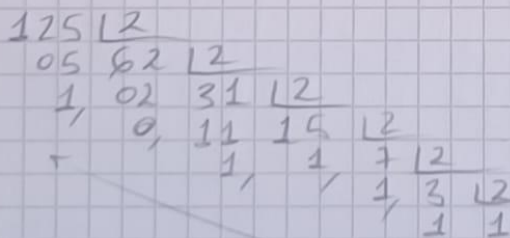 125 | 2
05 62 | 2
1, 02 31 | 2
0, 11 15 | 2
1, 1, 7 | 2
1, 3 | 2
1 1